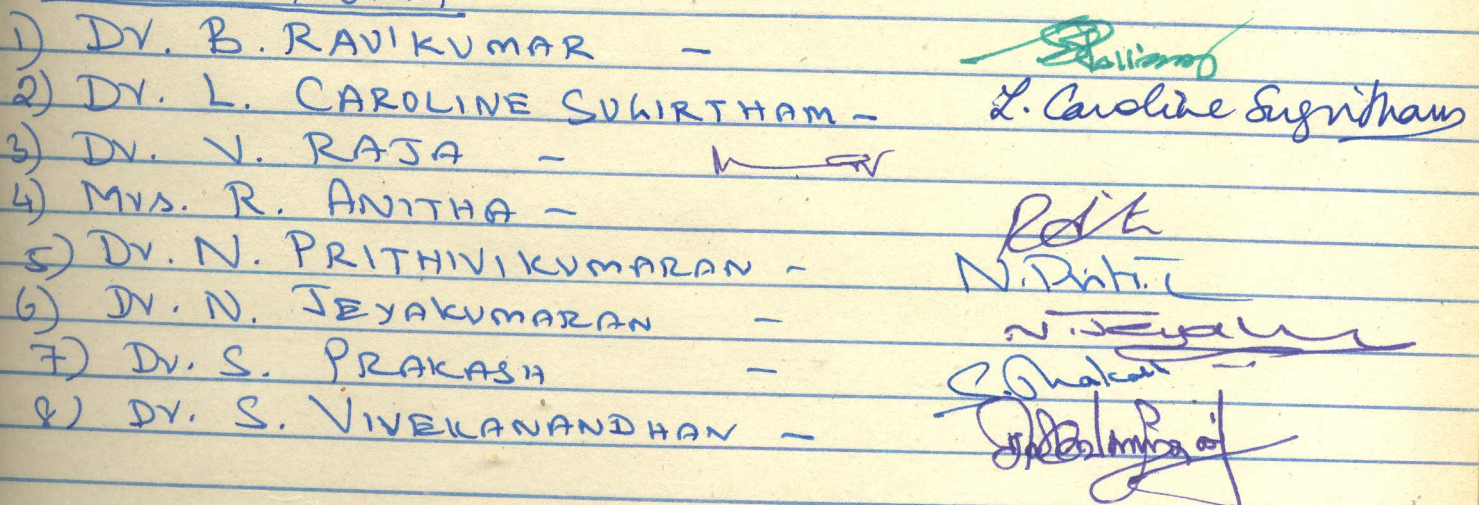 1) Dr. B. RAVIKUMAR -
2) Dr. L. CAROLINE SUGIRTHAM - L. Caroline Sugirtham
3) Dr. V. RAJA -
4) Mrs. R. ANITHA -
5) Dr. N. PRITHIVIKUMARAN -
6) Dr. N. JEYAKUMARAN -
7) Dr. S. PRAKASH - S. Prakash
8) Dr. S. VIVEKANANDHAN -